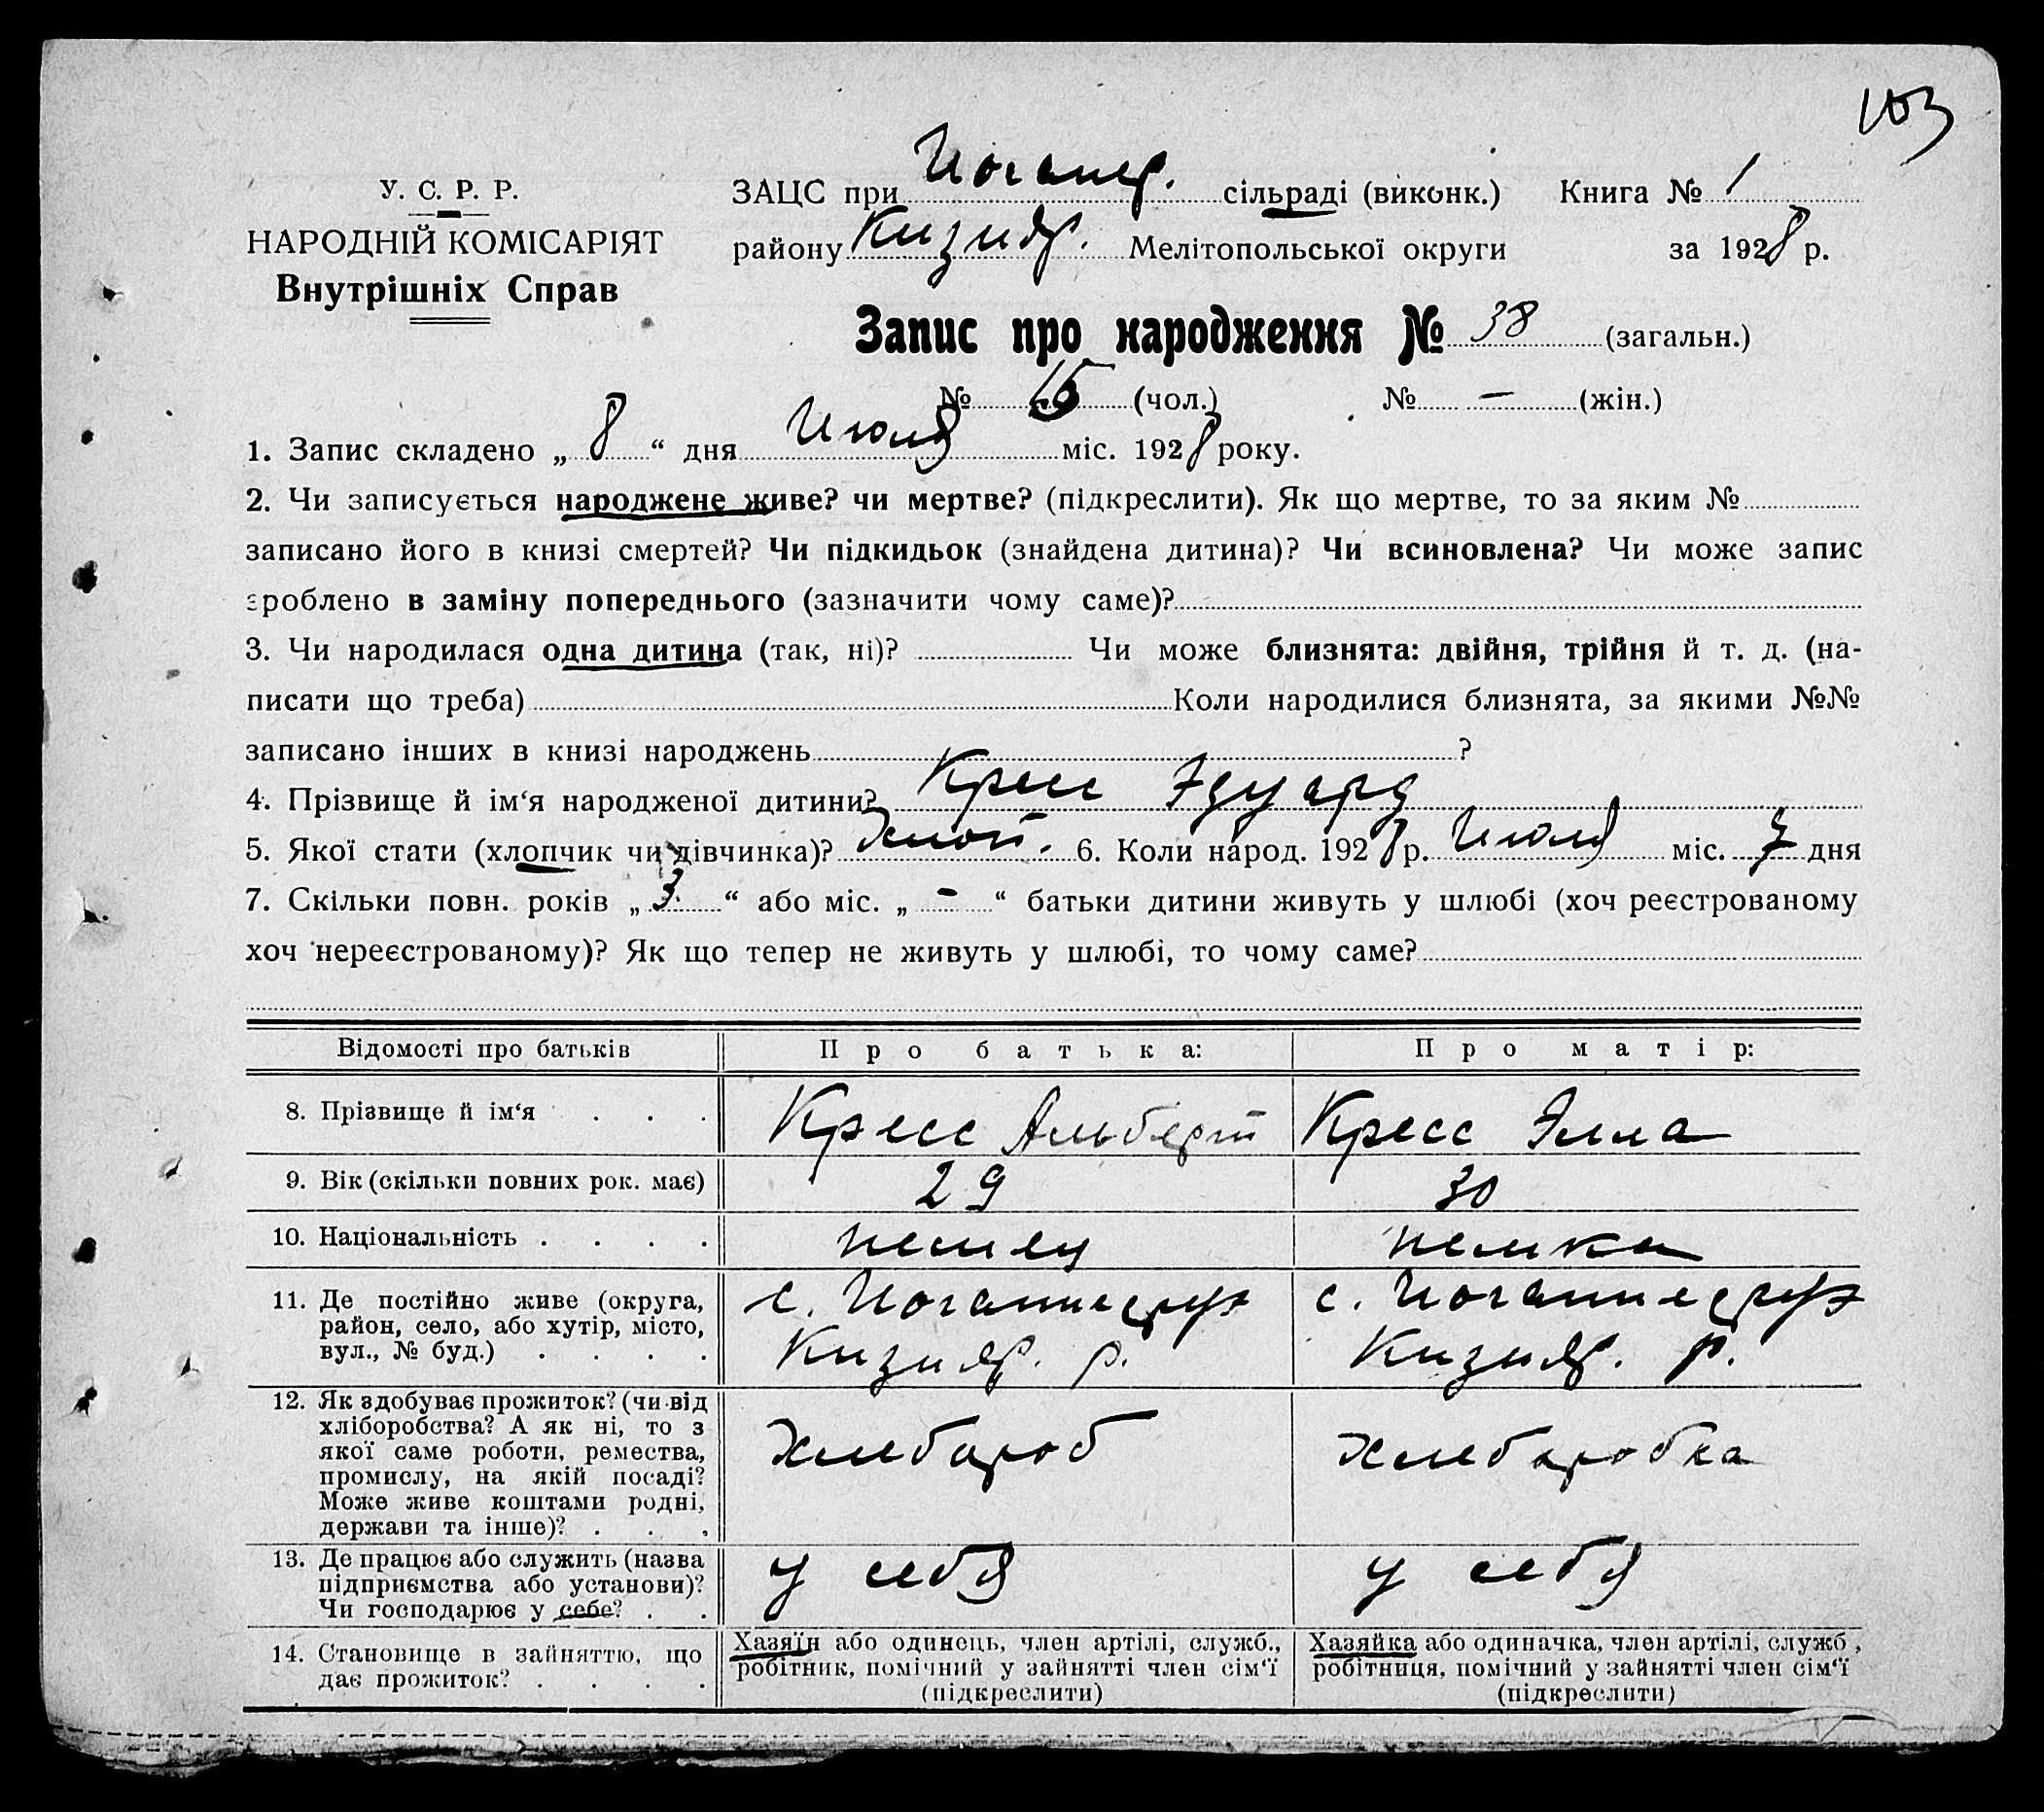 103
У. С. Р. Р.
НАРОДНІЙ КОМІСАРІЯТ
Внутрішніх Справ
ЗАЦС при Иоганер. сільраді (виконк.) Книга № 1
району Кизияр. Мелітопольської округи за 1928 р.
Запис про народження № 38 (загальн.)
№ 15 (чол.) № — (жін.)
1. Запис складено „ 8 “ дня Июля міс. 1928 року.
2. Чи записується народжене живе? чи мертве? (підкреслити). Як що мертве, то за яким №
записано його в книзі смертей? Чи підкидьок (знайдена дитина)? Чи всиновлена? Чи може запис
зроблено в заміну попереднього (зазначити чому саме)?
3. Чи народилася одна дитина (так, ні)? Чи може близнята: двійня, трійня й т. д. (на-
писати що треба) Коли народилися близнята, за якими №№
записано інших в книзі народжень ?
4. Прізвище й ім‘я народженої дитини? Кресс Эдуард
5. Якої стати (хлопчик чи дівчинка)? Хлоп. 6. Коли народ. 1928 р. Июля міс. 7 дня
7. Скільки повн. років „ 3 “ або міс. „ - “ батьки дитини живуть у шлюбі (хоч реєстрованому
хоч нереєстрованому)? Як що тепер не живуть у шлюбі, то чому саме?
Відомості про батьків Про батька: Про матір:
8. Прізвище й ім‘я . . . Кресс Альберт Кресс Элла
9. Вік (скільки повних рок. має) 29 30
10. Національність . . . . немец немка
11. Де постійно живе (округа,
район, село, або хутір, місто,
вул., № буд.) . . . .
с. Иоганнесруэ
Кизияр. р.
с. Иоганнесруэ
Кизияр. р.
12. Як здобуває прожиток? (чи від
хліборобства? А як ні, то з
якої саме роботи, ремества,
промислу, на якій посаді?
Може живе коштами родні,
держави та інше)? . . .
Хлебороб
Хлеборобка
13. Де працює або служить (назва
підприємства або установи)?
Чи господарює у себе? . .
у себя
у себя
14. Становище в зайняттю, що
дає прожиток? . . . .
Хазяїн або одинець, член артілі, служб.,
робітник, помічний у зайнятті член сім‘ї
(підкреслити)
Хазяйка або одиначка, член артілі, служб.,
робітниця, помічний у зайнятті член сім‘ї
(підкреслити)